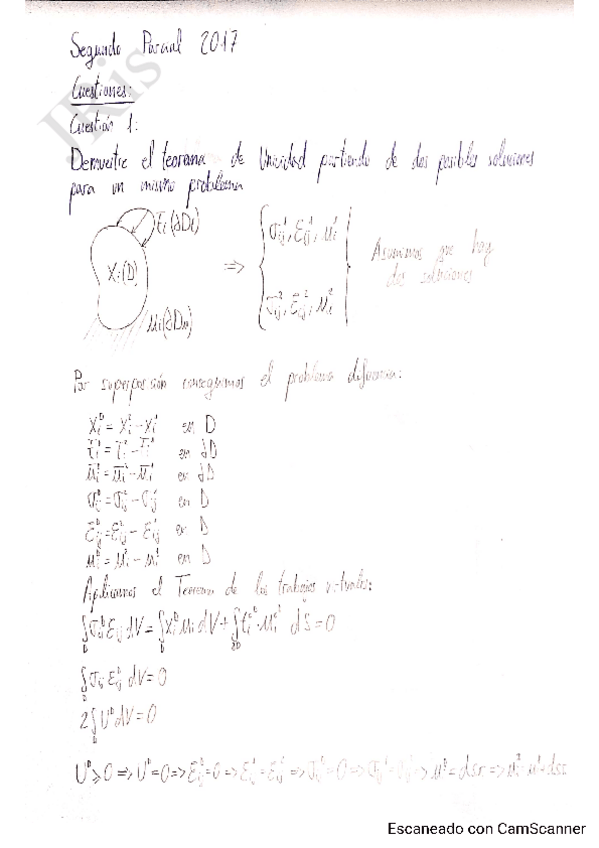 Segundo Parcial 2017
JRis
Cuestiones:
Cuestión 1:
Demuestre el teorema de Unicidad partiendo de dos posibles soluciones
para un mismo problema
t̄i(∂Dt)
Xi(D)
ūi(∂Du)
⇒
σij¹, εij¹, ui¹
σij², εij², ui²
Asumimos que hay
dos soluciones
Por superposición conseguimos el problema diferencia:
XiD = Xi² - Xi¹ en D
t̄iD = t̄i² - t̄i¹ en ∂D
ūiD = ūi² - ūi¹ en ∂D
σijD = σij² - σij¹ en D
εijD = εij² - εij¹ en D
uiD = ui² - ui¹ en D
Aplicamos el Teorema de los trabajos virtuales:
∫D σijD εij dV = ∫D XiD ui dV + ∫∂D tiD · uiD dS = 0
∫D σij εijD dV = 0
2∫D UD dV = 0
UD ≥ 0 ⇒ UD = 0 ⇒ εijD = 0 ⇒ εij² = εij¹ ⇒ σijD = 0 ⇒ ⇒ uD = dsr ⇒
Escaneado con CamScanner